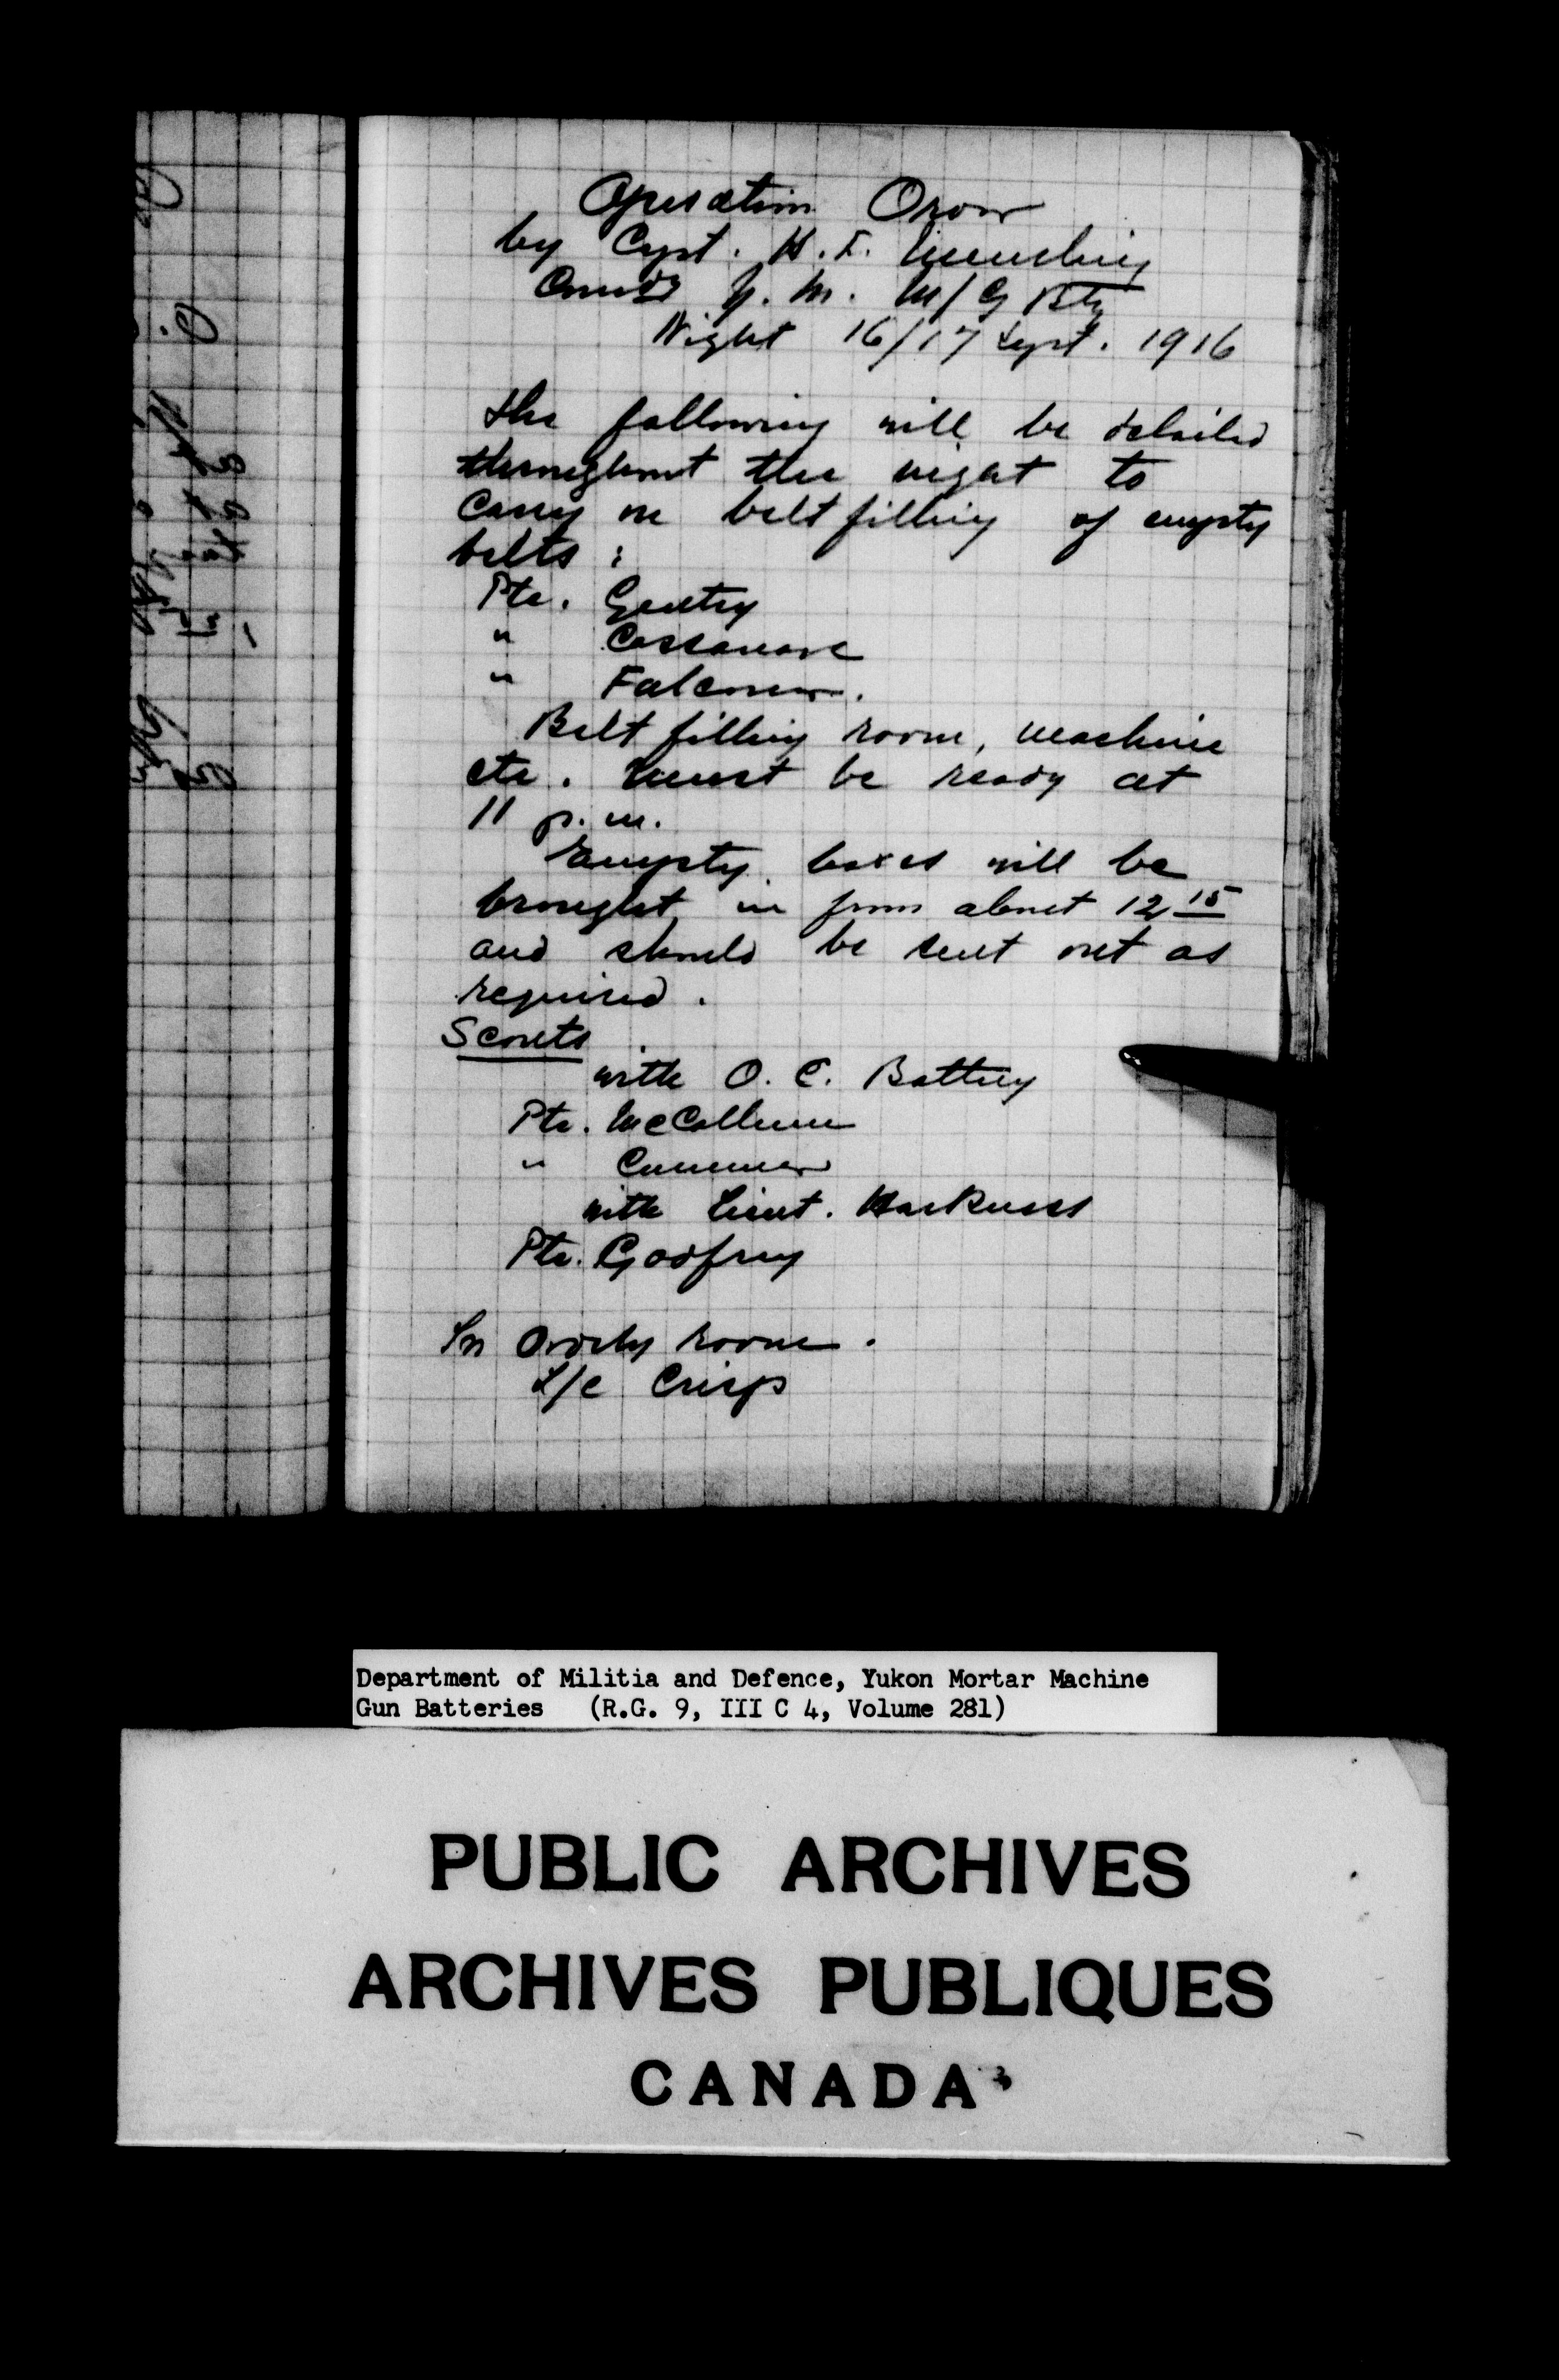 Operation Order
by Capt. H. F. Meurling
Comdg Y. M. M/G Bty
Night 16/17 Sept. 1916
The following will be detailed
throughout the night to
carry on belt filling of empty
belts :
Pte. Gentry
" Cassanave
" Falconer.
Belt filling room, machine
etc. must be ready at
11 p.m.
Empty boxes will be
brought in from about 12 15
and should be sent out as
required.
Scouts
with O. C. Battery
Pte. McCollum
"
with Lieut. Harkness
Pte. Godfrey
In Orderly room.
L/c Crisp
Department of Militia and Defence, Yukon Mortar Machine
Gun Batteries (R.G. 9, III C 4, Volume 281)
PUBLIC ARCHIVES
ARCHIVES PUBLIQUES
CANADA